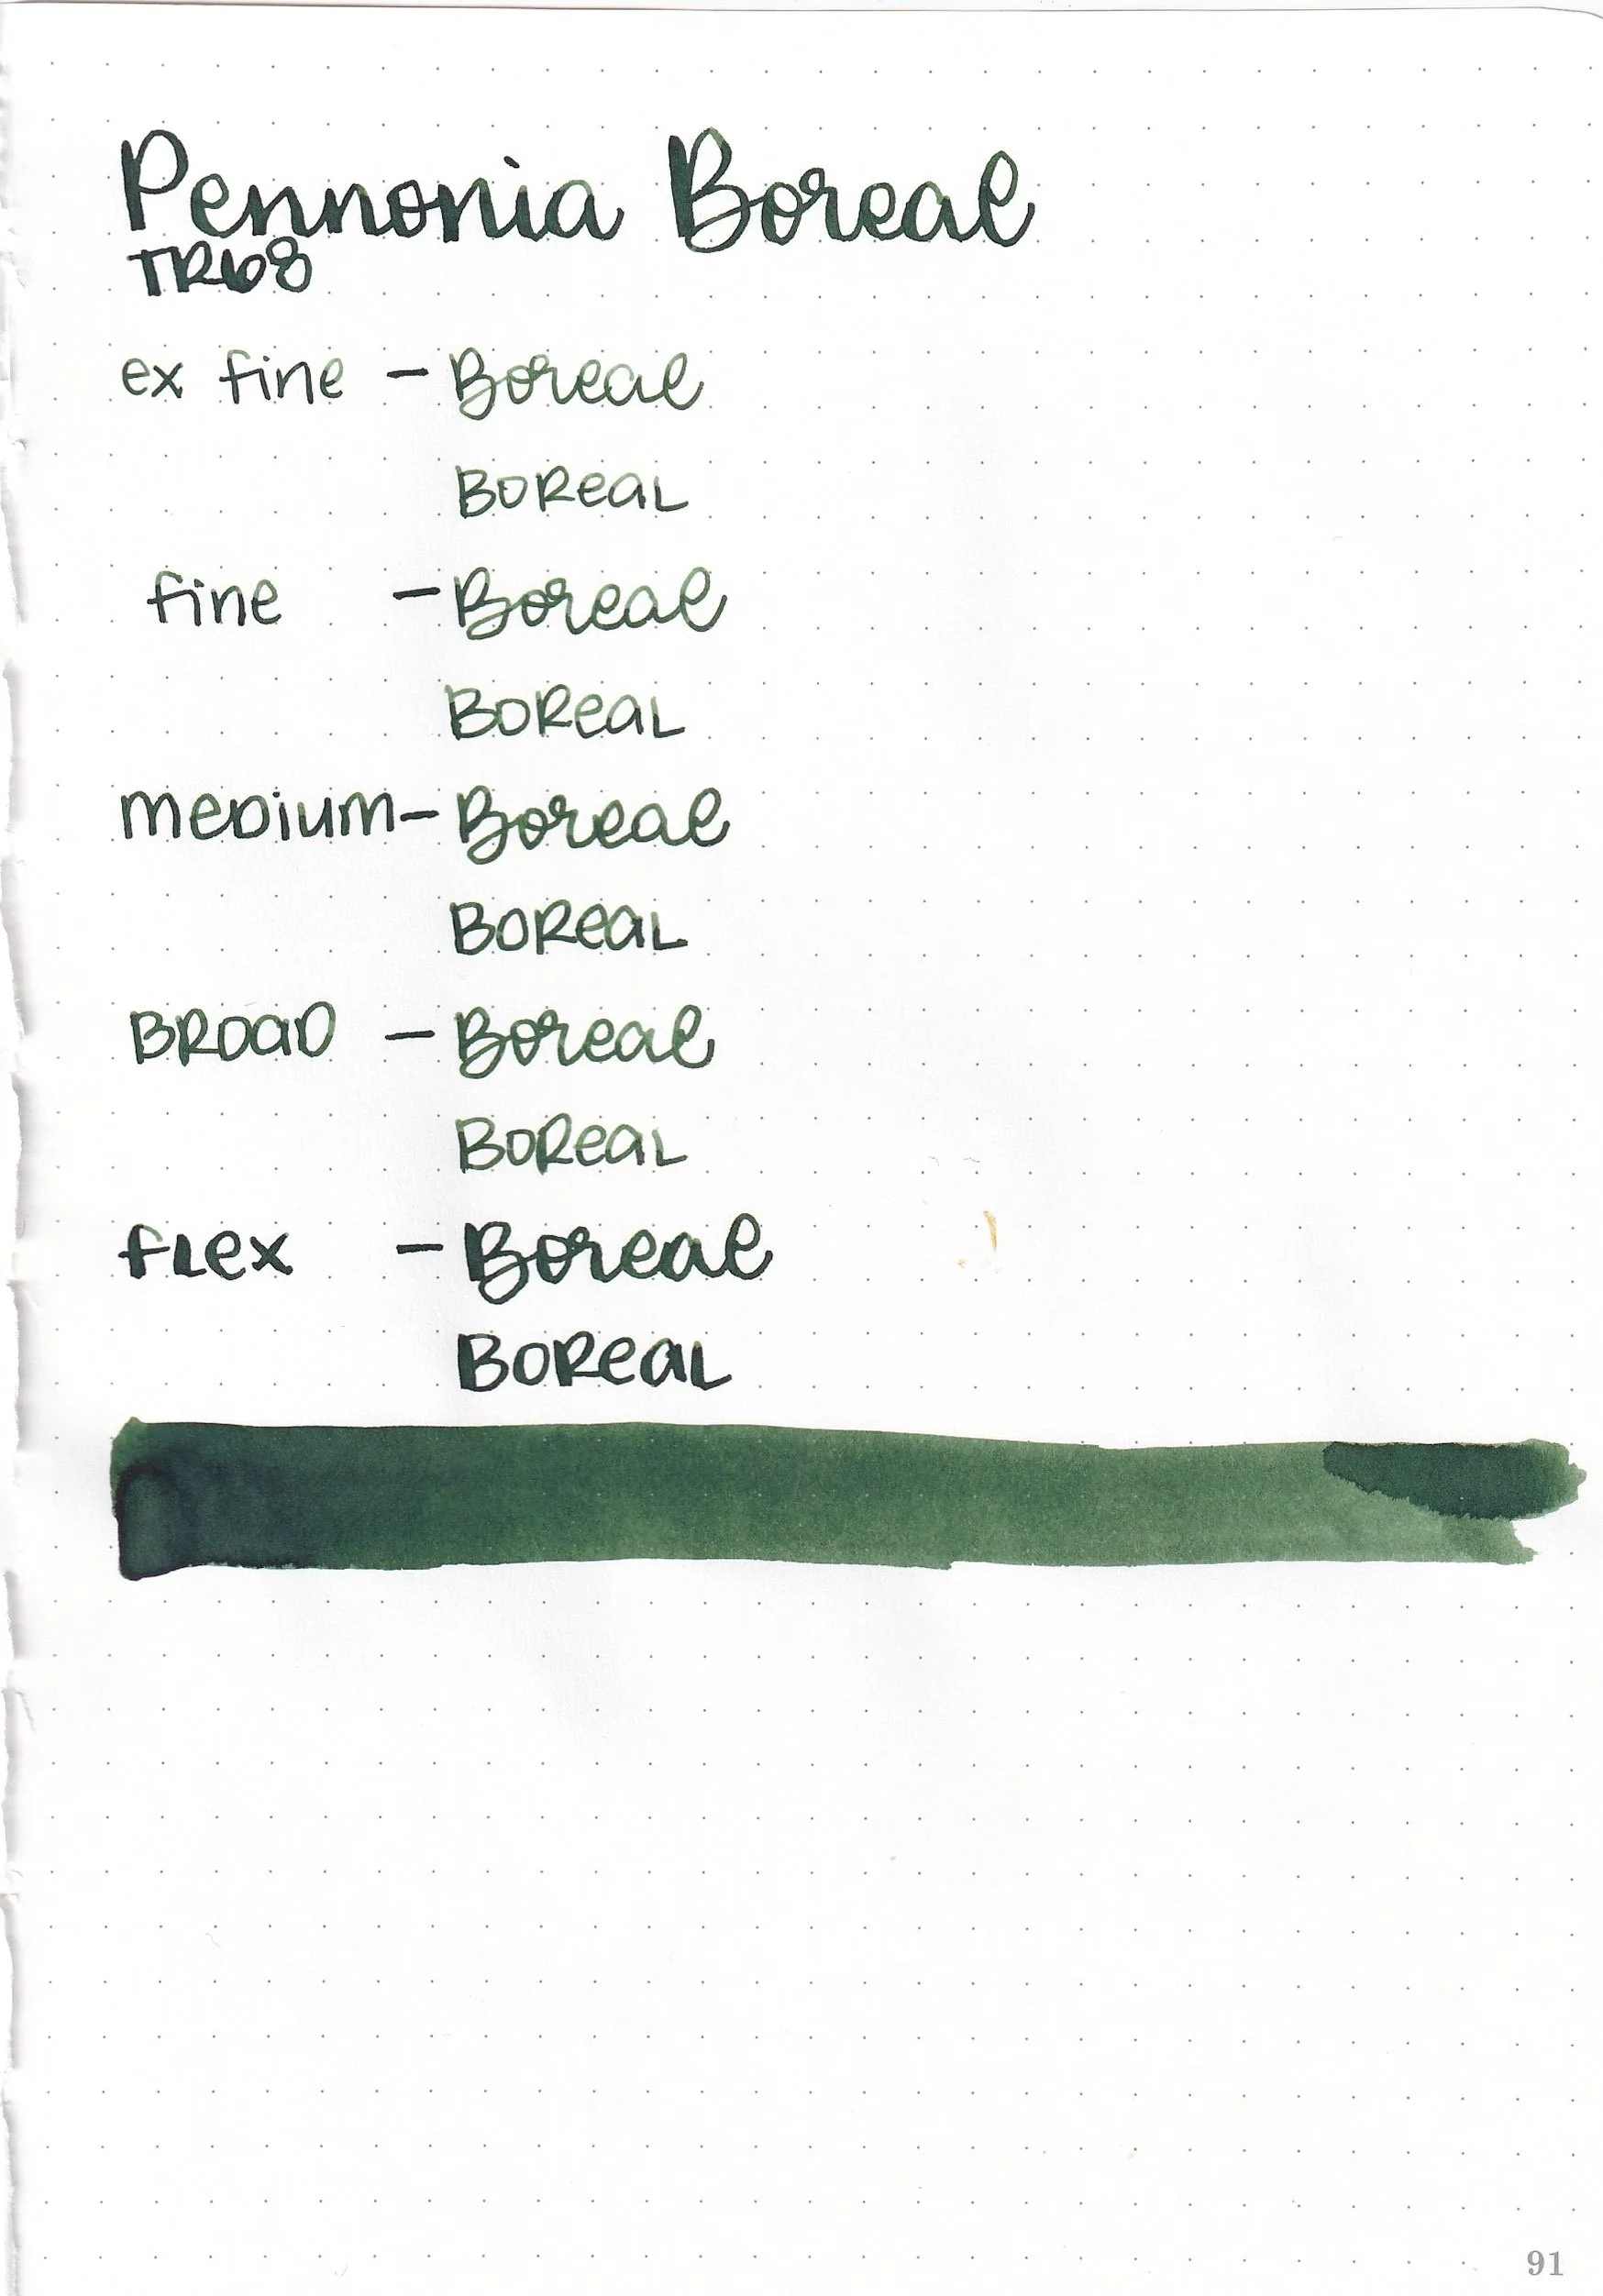 Pennonia Boreal
TR68
ex fine - Boreal
BOReaL
fine - Boreal
BOReaL
meDium - Boreal
BOReaL
BROaD - Boreal
BOReaL
fLex - Boreal
BOReaL
91